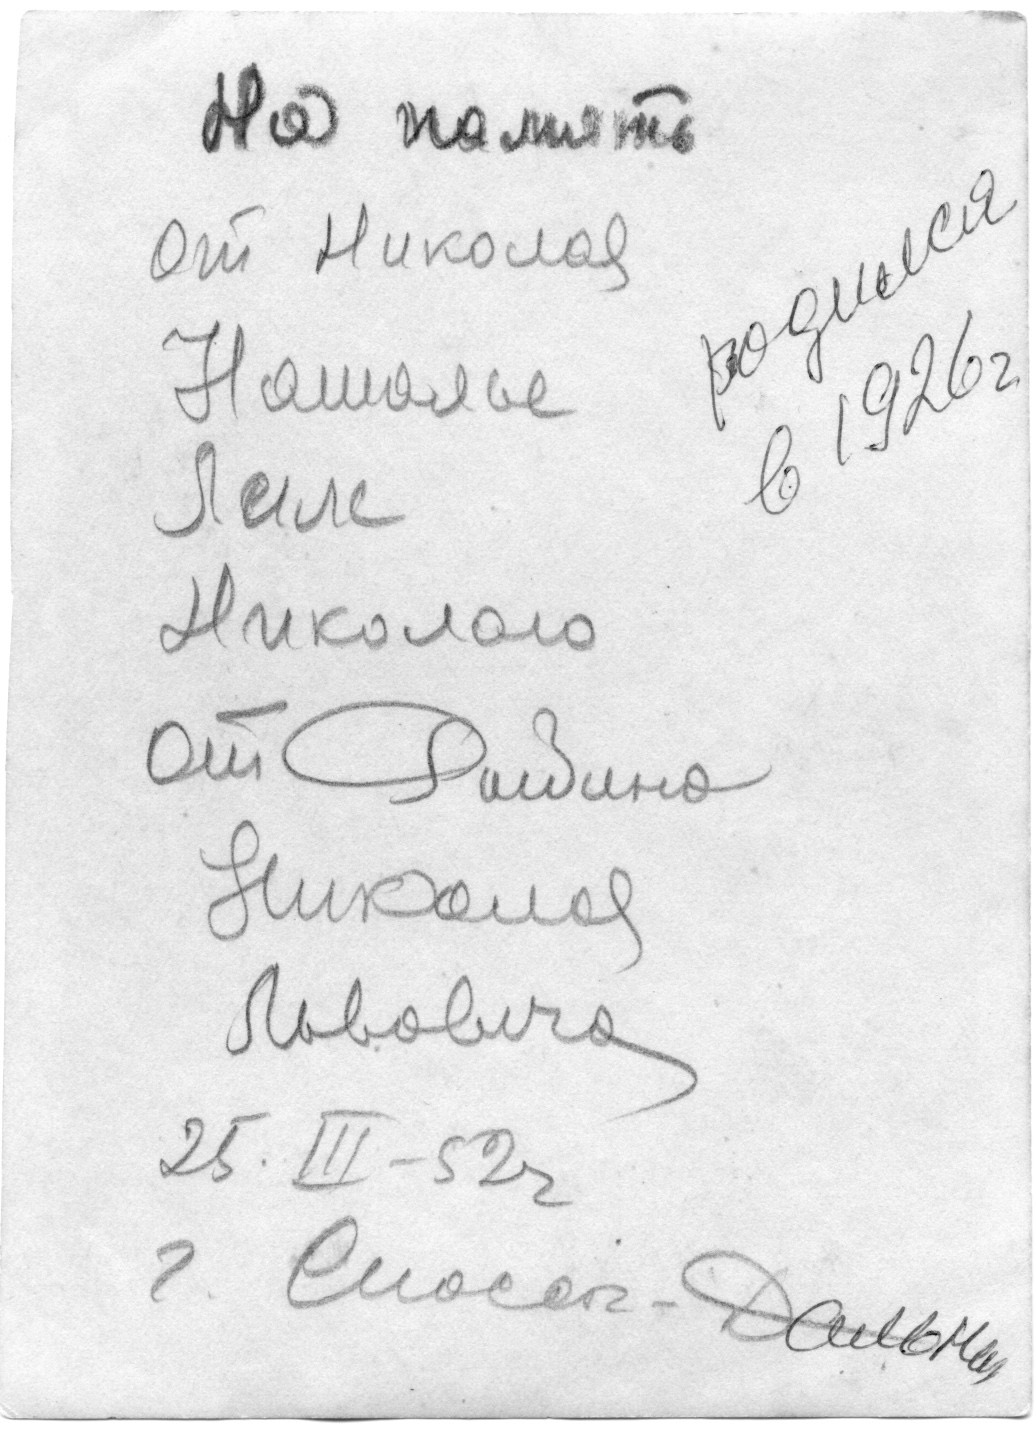 На память
от Николая
Наталье
Ляле
Николаю
от
Николая
Львовича
25. III-52г
г. Спасск-Дальний
родился
в 1926г